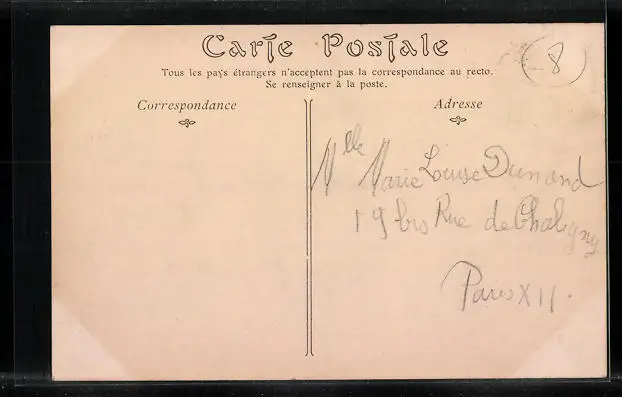 Carte Postale
8
Tous les pays étrangers n'acceptent pas la correspondance au recto.
Se renseigner à la poste.
Correspondance
Adresse
Mlle Marie Louise Dunand
19 bis Rue de Chaligny
Paris XII.